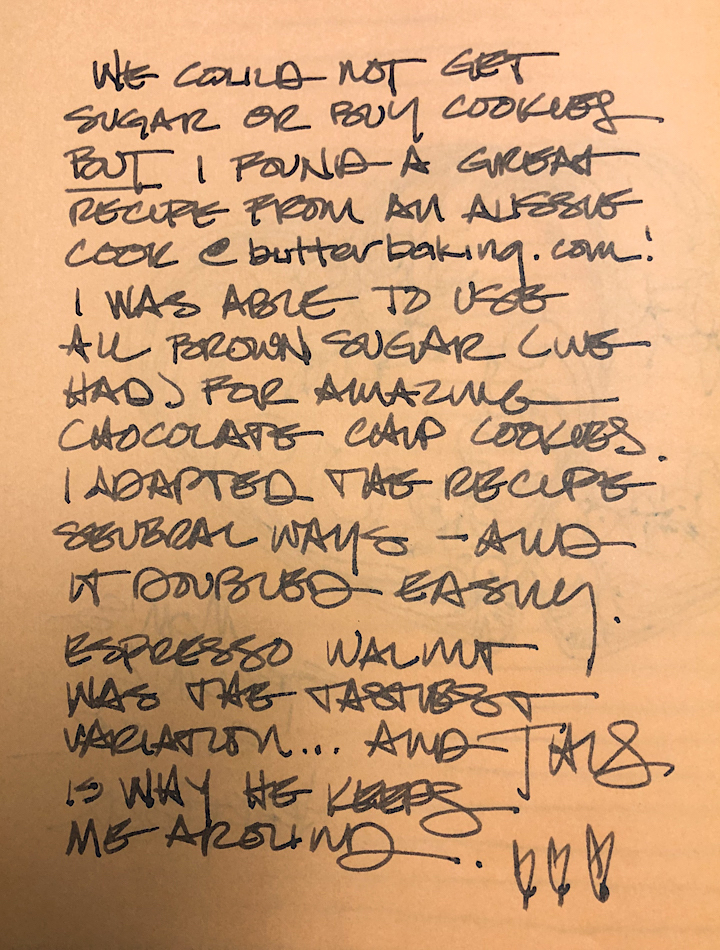 WE COULD NOT GET
SUGAR OR BUY COOKIES
BUT I FOUND A GREAT
RECIPE FROM AN AUSSIE
COOK @ butterbaking.com!
I WAS ABLE TO USE
ALL BROWN SUGAR (WE
HAD) FOR AMAZING
CHOCOLATE CHIP COOKIES.
I ADAPTED THE RECIPE
SEVERAL WAYS - AND
IT DOUBLED EASILY.
ESPRESSO WALNUT
WAS THE TASTIEST
VARIATION... AND THIS
IS WHY HE KEEPS
ME AROUND.